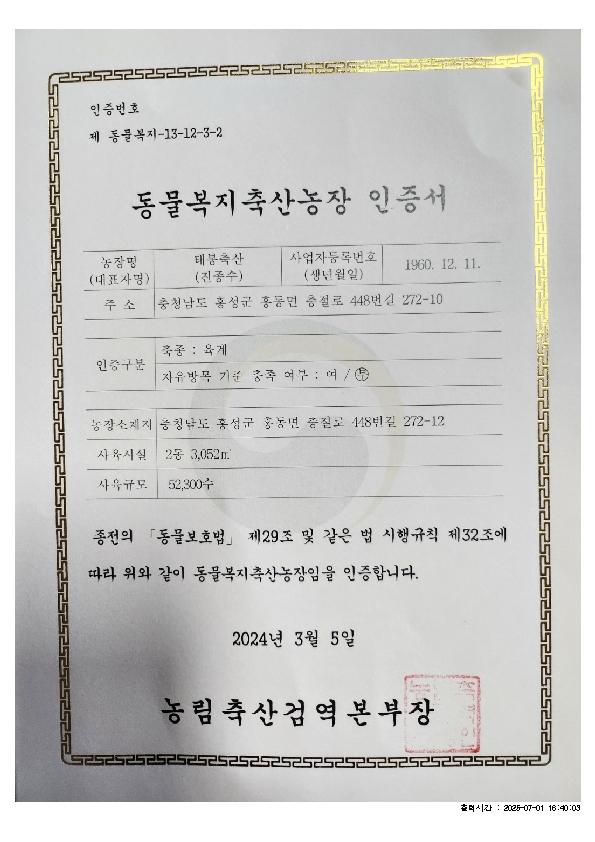 인증번호
제 동물복지-13-12-3-2
동물복지축산농장 인증서
농장명 (대표자명) 태봉축산 (진종수) 사업자등록번호 (생년월일) 1960. 12. 11.
주 소 충청남도 홍성군 홍동면 충절로 448번길 272-10
인증구분 축종 : 육계
자유방목 기준 충족 여부 : 여 / 부
농장소재지 충청남도 홍성군 홍동면 충절로 448번길 272-12
사육시설 2동 3,052㎡
사육규모 52,300수
종전의 「동물보호법」 제29조 및 같은 법 시행규칙 제32조에
따라 위와 같이 동물복지축산농장임을 인증합니다.
2024년 3월 5일
농림축산검역본부장
출력시간 : 2025-07-01 16:40:03